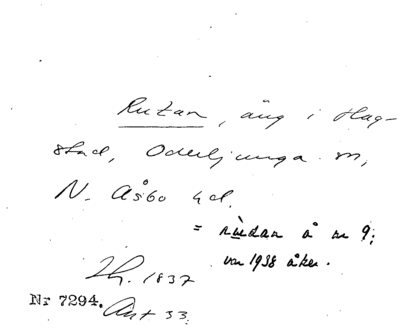 Rutan, äng i Hag-
stad, Oderljunga sn,
N. Åsbo hd.
= rùdan å nr 9;
var 1938 åker.
1837
Nr 7294. Ant 33.